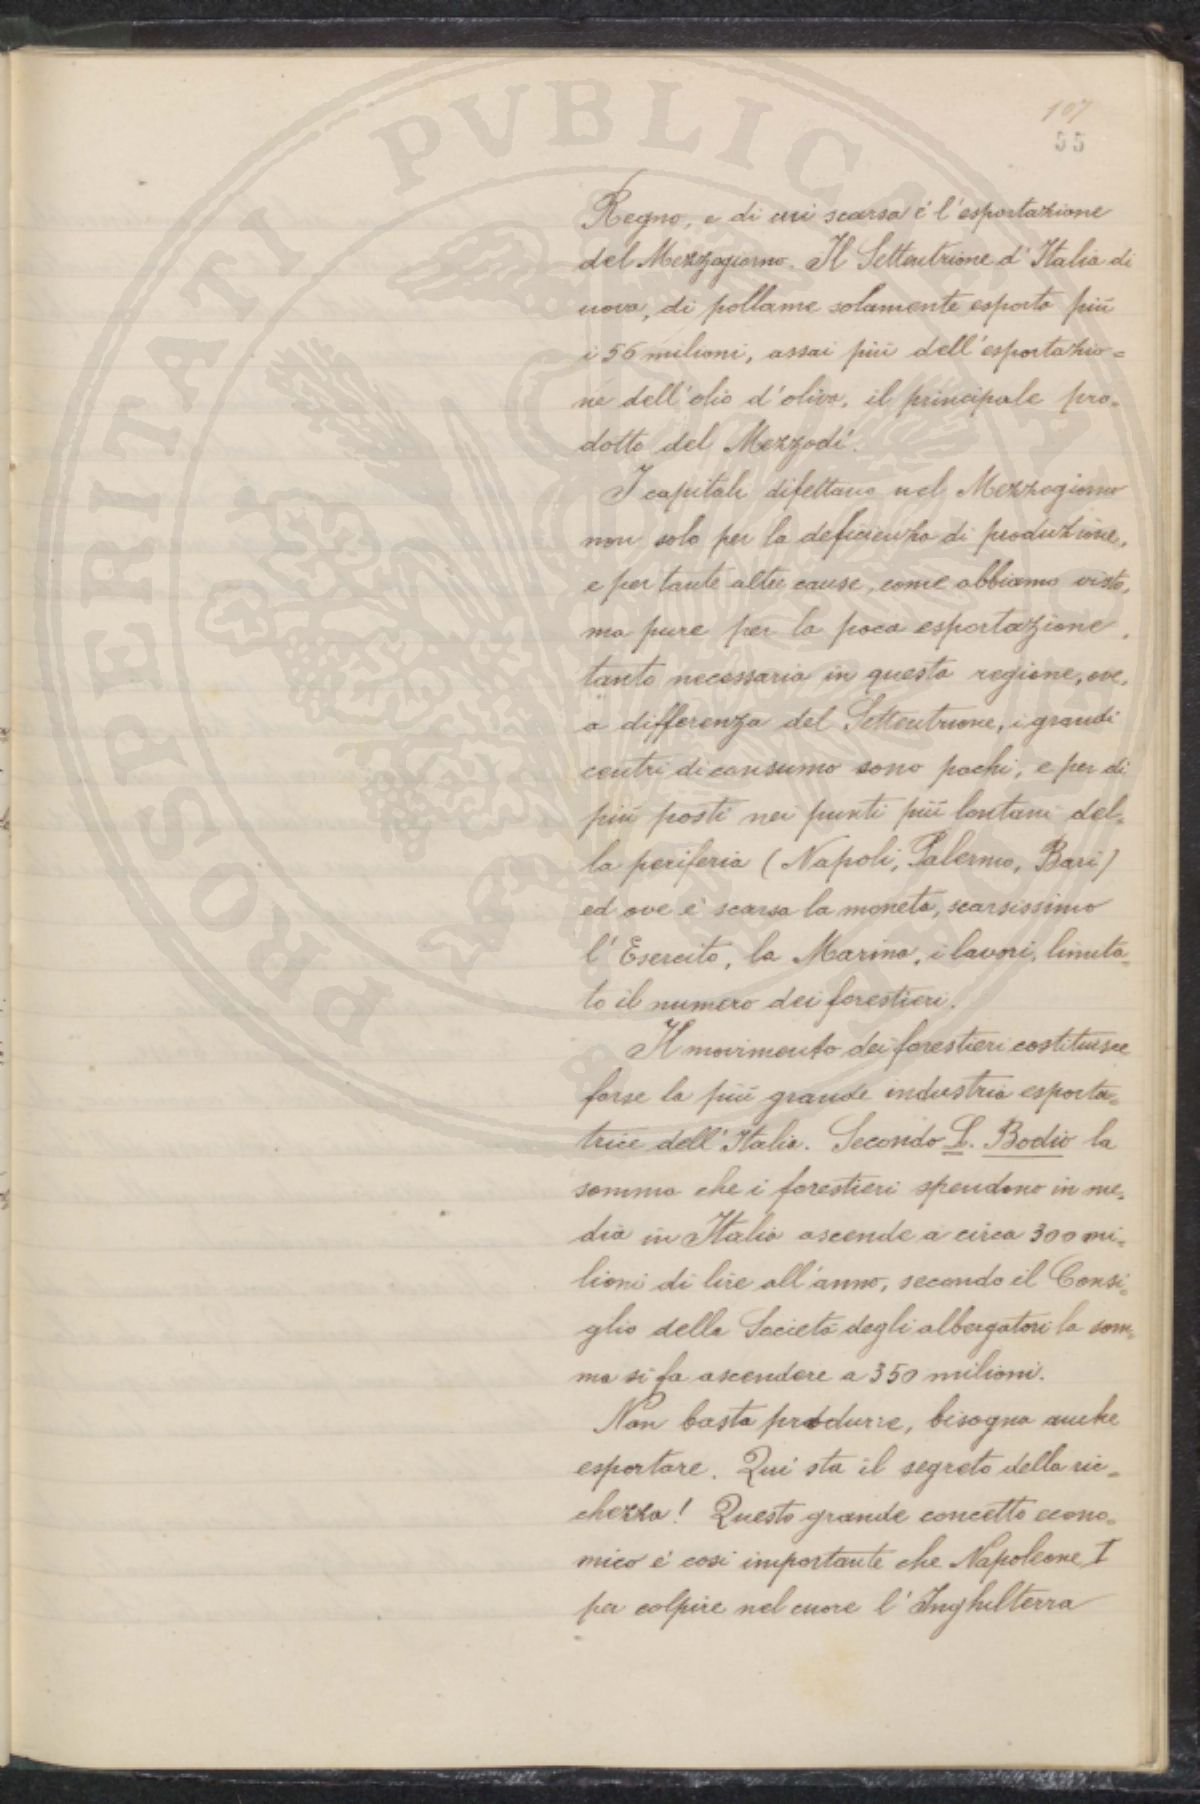 107
55
Regno, e di cui scarsa è l'esportazione
del Mezzogiorno. Il Settentrione d'Italia di
uova, di pollame solamente esporta più
i 56 milioni, assai più dell'esportazio=
ne dell'olio d'oliva, il principale pro=
dotto del Mezzodì.
I capitali difettano nel Mezzogiorno
non solo per la deficienza di produzione,
e per tante altre cause, come abbiamo visto,
ma pure per la poca esportazione,
tanto necessaria in questa regione, ove,
a differenza del Settentrione, i grandi
centri di consumo sono pochi, e per di
più posti nei punti più lontani del=
la periferia (Napoli, Palermo, Bari)
ed ove è scarsa la moneta, scarsissimo
l'Esercito, la Marina, i lavori, limita=
to il numero dei forestieri.
Il movimento dei forestieri costituisce
forse la più grande industria esporta=
trice dell'Italia. Secondo L. Bodio la
somma che i forestieri spendono in me=
dia in Italia ascende a circa 300 mi=
lioni di lire all'anno, secondo il Consi=
glio della Società degli albergatori la som=
ma si fa ascendere a 350 milioni.
Non basta produrre, bisogna anche
esportare. Qui sta il segreto della ric=
chezza! Questo grande concetto econo=
mico è così importante che Napoleone I
per colpire nel cuore l'Inghilterra
PROSPERITATI PVBLICAE